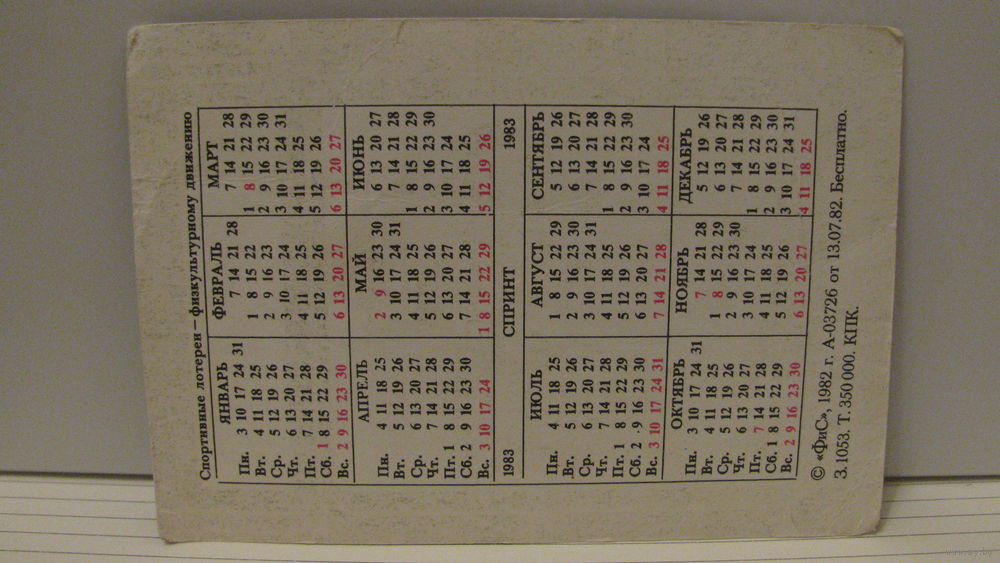 Спортивные лотереи — физкультурному движению
ЯНВАРЬ ФЕВРАЛЬ МАРТ
Пн. 3 10 17 24 31 7 14 21 28 7 14 21 28
Вт. 4 11 18 25 1 8 15 22 1 8 15 22 29
Ср. 5 12 19 26 2 9 16 23 2 9 16 23 30
Чт. 6 13 20 27 3 10 17 24 3 10 17 24 31
Пт. 7 14 21 28 4 11 18 25 4 11 18 25
Сб. 1 8 15 22 29 5 12 19 26 5 12 19 26
Вс. 2 9 16 23 30 6 13 20 27 6 13 20 27
АПРЕЛЬ МАЙ ИЮНЬ
Пн. 4 11 18 25 2 9 16 23 30 6 13 20 27
Вт. 5 12 19 26 3 10 17 24 31 7 14 21 28
Ср. 6 13 20 27 4 11 18 25 1 8 15 22 29
Чт. 7 14 21 28 5 12 19 26 2 9 16 23 30
Пт. 1 8 15 22 29 6 13 20 27 3 10 17 24
Сб. 2 9 16 23 30 7 14 21 28 4 11 18 25
Вс. 3 10 17 24 1 8 15 22 29 5 12 19 26
1983 СПРИНТ 1983
ИЮЛЬ АВГУСТ СЕНТЯБРЬ
Пн. 4 11 18 25 1 8 15 22 29 5 12 19 26
Вт. 5 12 19 26 2 9 16 23 30 6 13 20 27
Ср. 6 13 20 27 3 10 17 24 31 7 14 21 28
Чт. 7 14 21 28 4 11 18 25 1 8 15 22 29
Пт. 1 8 15 22 29 5 12 19 26 2 9 16 23 30
Сб. 2 9 16 23 30 6 13 20 27 3 10 17 24
Вс. 3 10 17 24 31 7 14 21 28 4 11 18 25
ОКТЯБРЬ НОЯБРЬ ДЕКАБРЬ
Пн. 3 10 17 24 31 7 14 21 28 5 12 19 26
Вт. 4 11 18 25 1 8 15 22 29 6 13 20 27
Ср. 5 12 19 26 2 9 16 23 30 7 14 21 28
Чт. 6 13 20 27 3 10 17 24 1 8 15 22 29
Пт. 7 14 21 28 4 11 18 25 2 9 16 23 30
Сб. 1 8 15 22 29 5 12 19 26 3 10 17 24 31
Вс. 2 9 16 23 30 6 13 20 27 4 11 18 25
© «ФиС», 1982 г. А-03726 от 13.07.82. Бесплатно.
З. 1053. Т. 350 000. КПК.